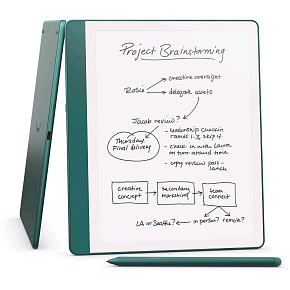 Project Brainstorming
creative oversight
Rosie
delegate assets
Jacob review?
Thursday
Final delivery
- leadership check in
rounds 1, 3, skip 4
- check in with Laura
on turn-around time
- copy review post-
launch
creative
concept
secondary
marketing
team
connect
LA or Seattle? in person? remote?